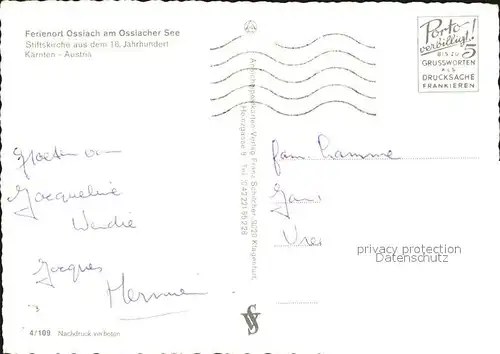 Ferienort Ossiach am Ossiacher See
Stiftskirche aus dem 16. Jahrhundert
Kärnten - Austria
Porto
verbilligt!
BIS ZU 5
GRUSSWORTEN
ALS
DRUCKSACHE
FRANKIEREN
Groeten van
Jacqueline
Wendie
Jacques
Hermien
Ansichtskarten-Verlag Franz Schilcher, 9020 Klagenfurt,
Heinzgasse 8 Tel. (04222)
fam.
privacy protection
Datenschutz
4/109 Nachdruck verboten